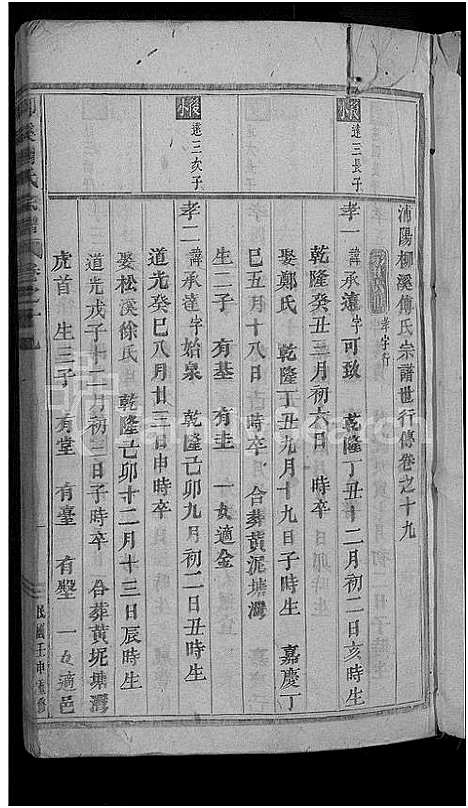 沛陽柳溪傅氏宗譜世行傳卷之十九
孝字行
後 遠三長子
孝一 諱承遠字可致 乾隆丁丑十二月初二日亥時生
乾隆癸丑三月初六日 時卒
娶鄭氏 乾隆丁丑九月十九日子時生 嘉慶丁
巳五月十八日 時卒 合葬黃泥塘灣
生二子 有基 有圭 一女適金
後 遠三次子
孝二 諱承達字始泉 乾隆己卯九月初二日丑時生
道光癸巳八月廿三日申時卒
娶松溪徐氏 乾隆己卯十二月十三日辰時生
道光戊子十二月初三日子時卒 合葬黃坭塘灣
虎首 生三子 有堂 有臺 有壂 一女適邑
氏宗譜 卷之十九
一
民國壬申重修